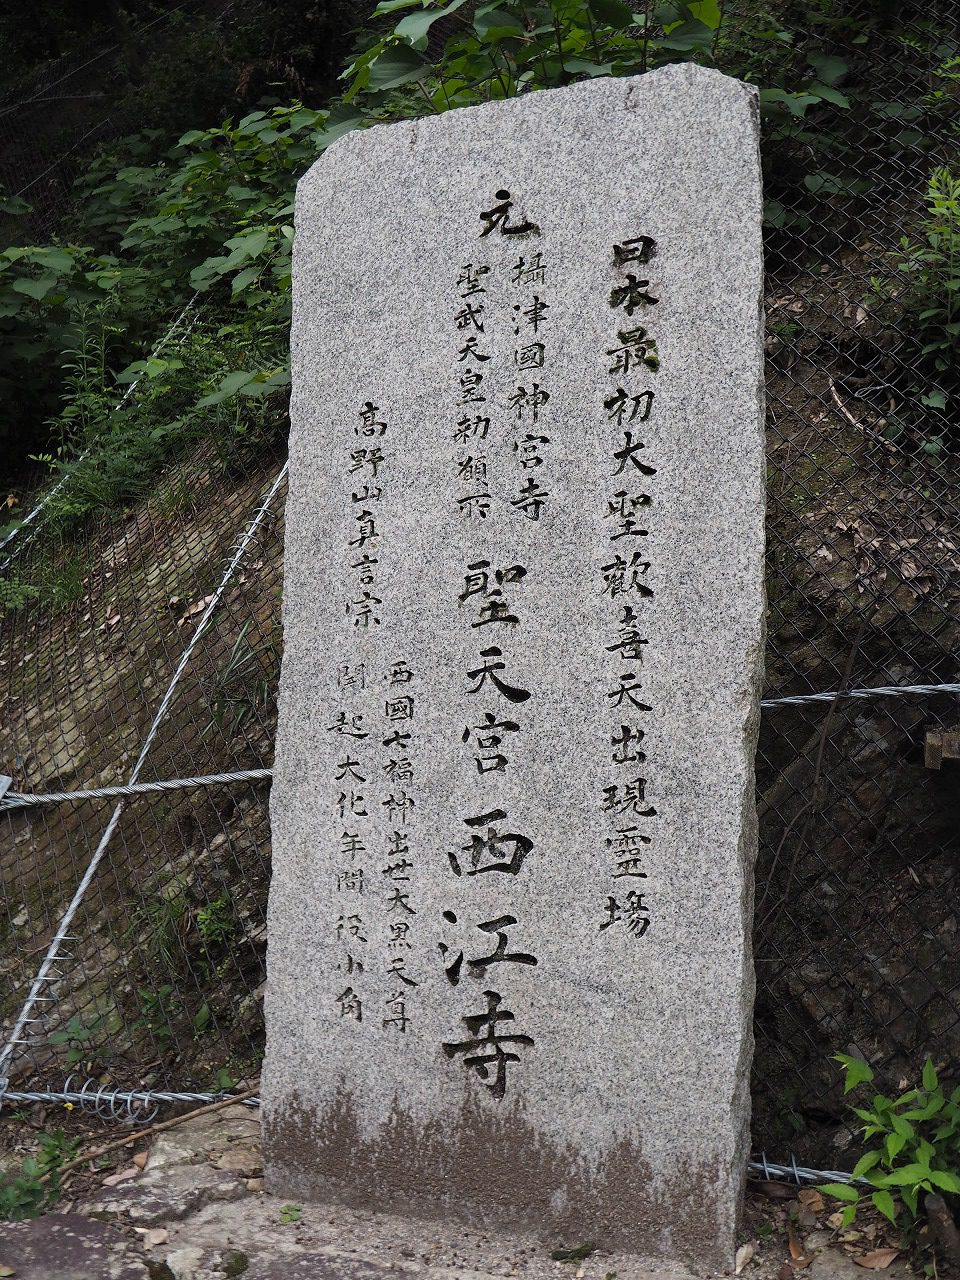 日本最初大聖歓喜天出現靈場
元
攝津國神宮寺
聖武天皇勅願所
聖天宮西江寺
高野山真言宗
西國七福神出世大黒天尊
開起大化年間役小角